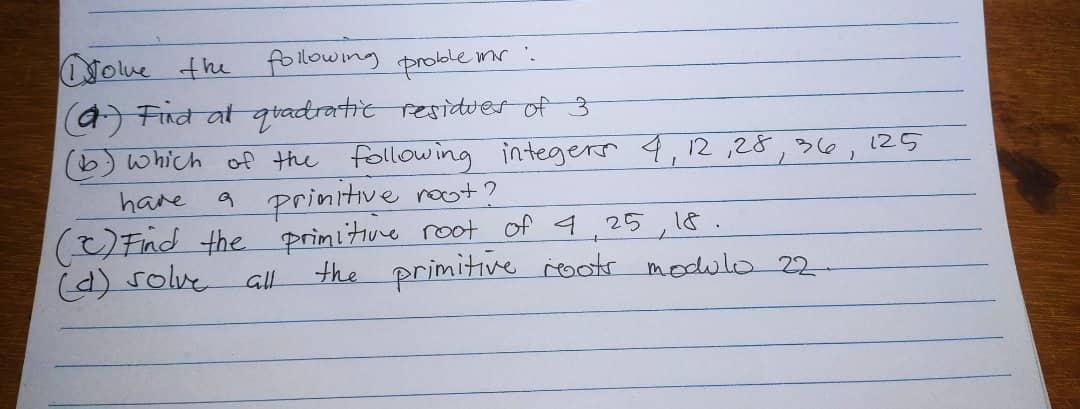 ① Solve the following problems :
(a.) Find al quadratic residues of 3
(b) which of the following integers 4, 12, 28, 36, 125
have a primitive root?
(c) Find the primitive root of 4, 25, 18.
(d) solve all the primitive roots modulo 22.